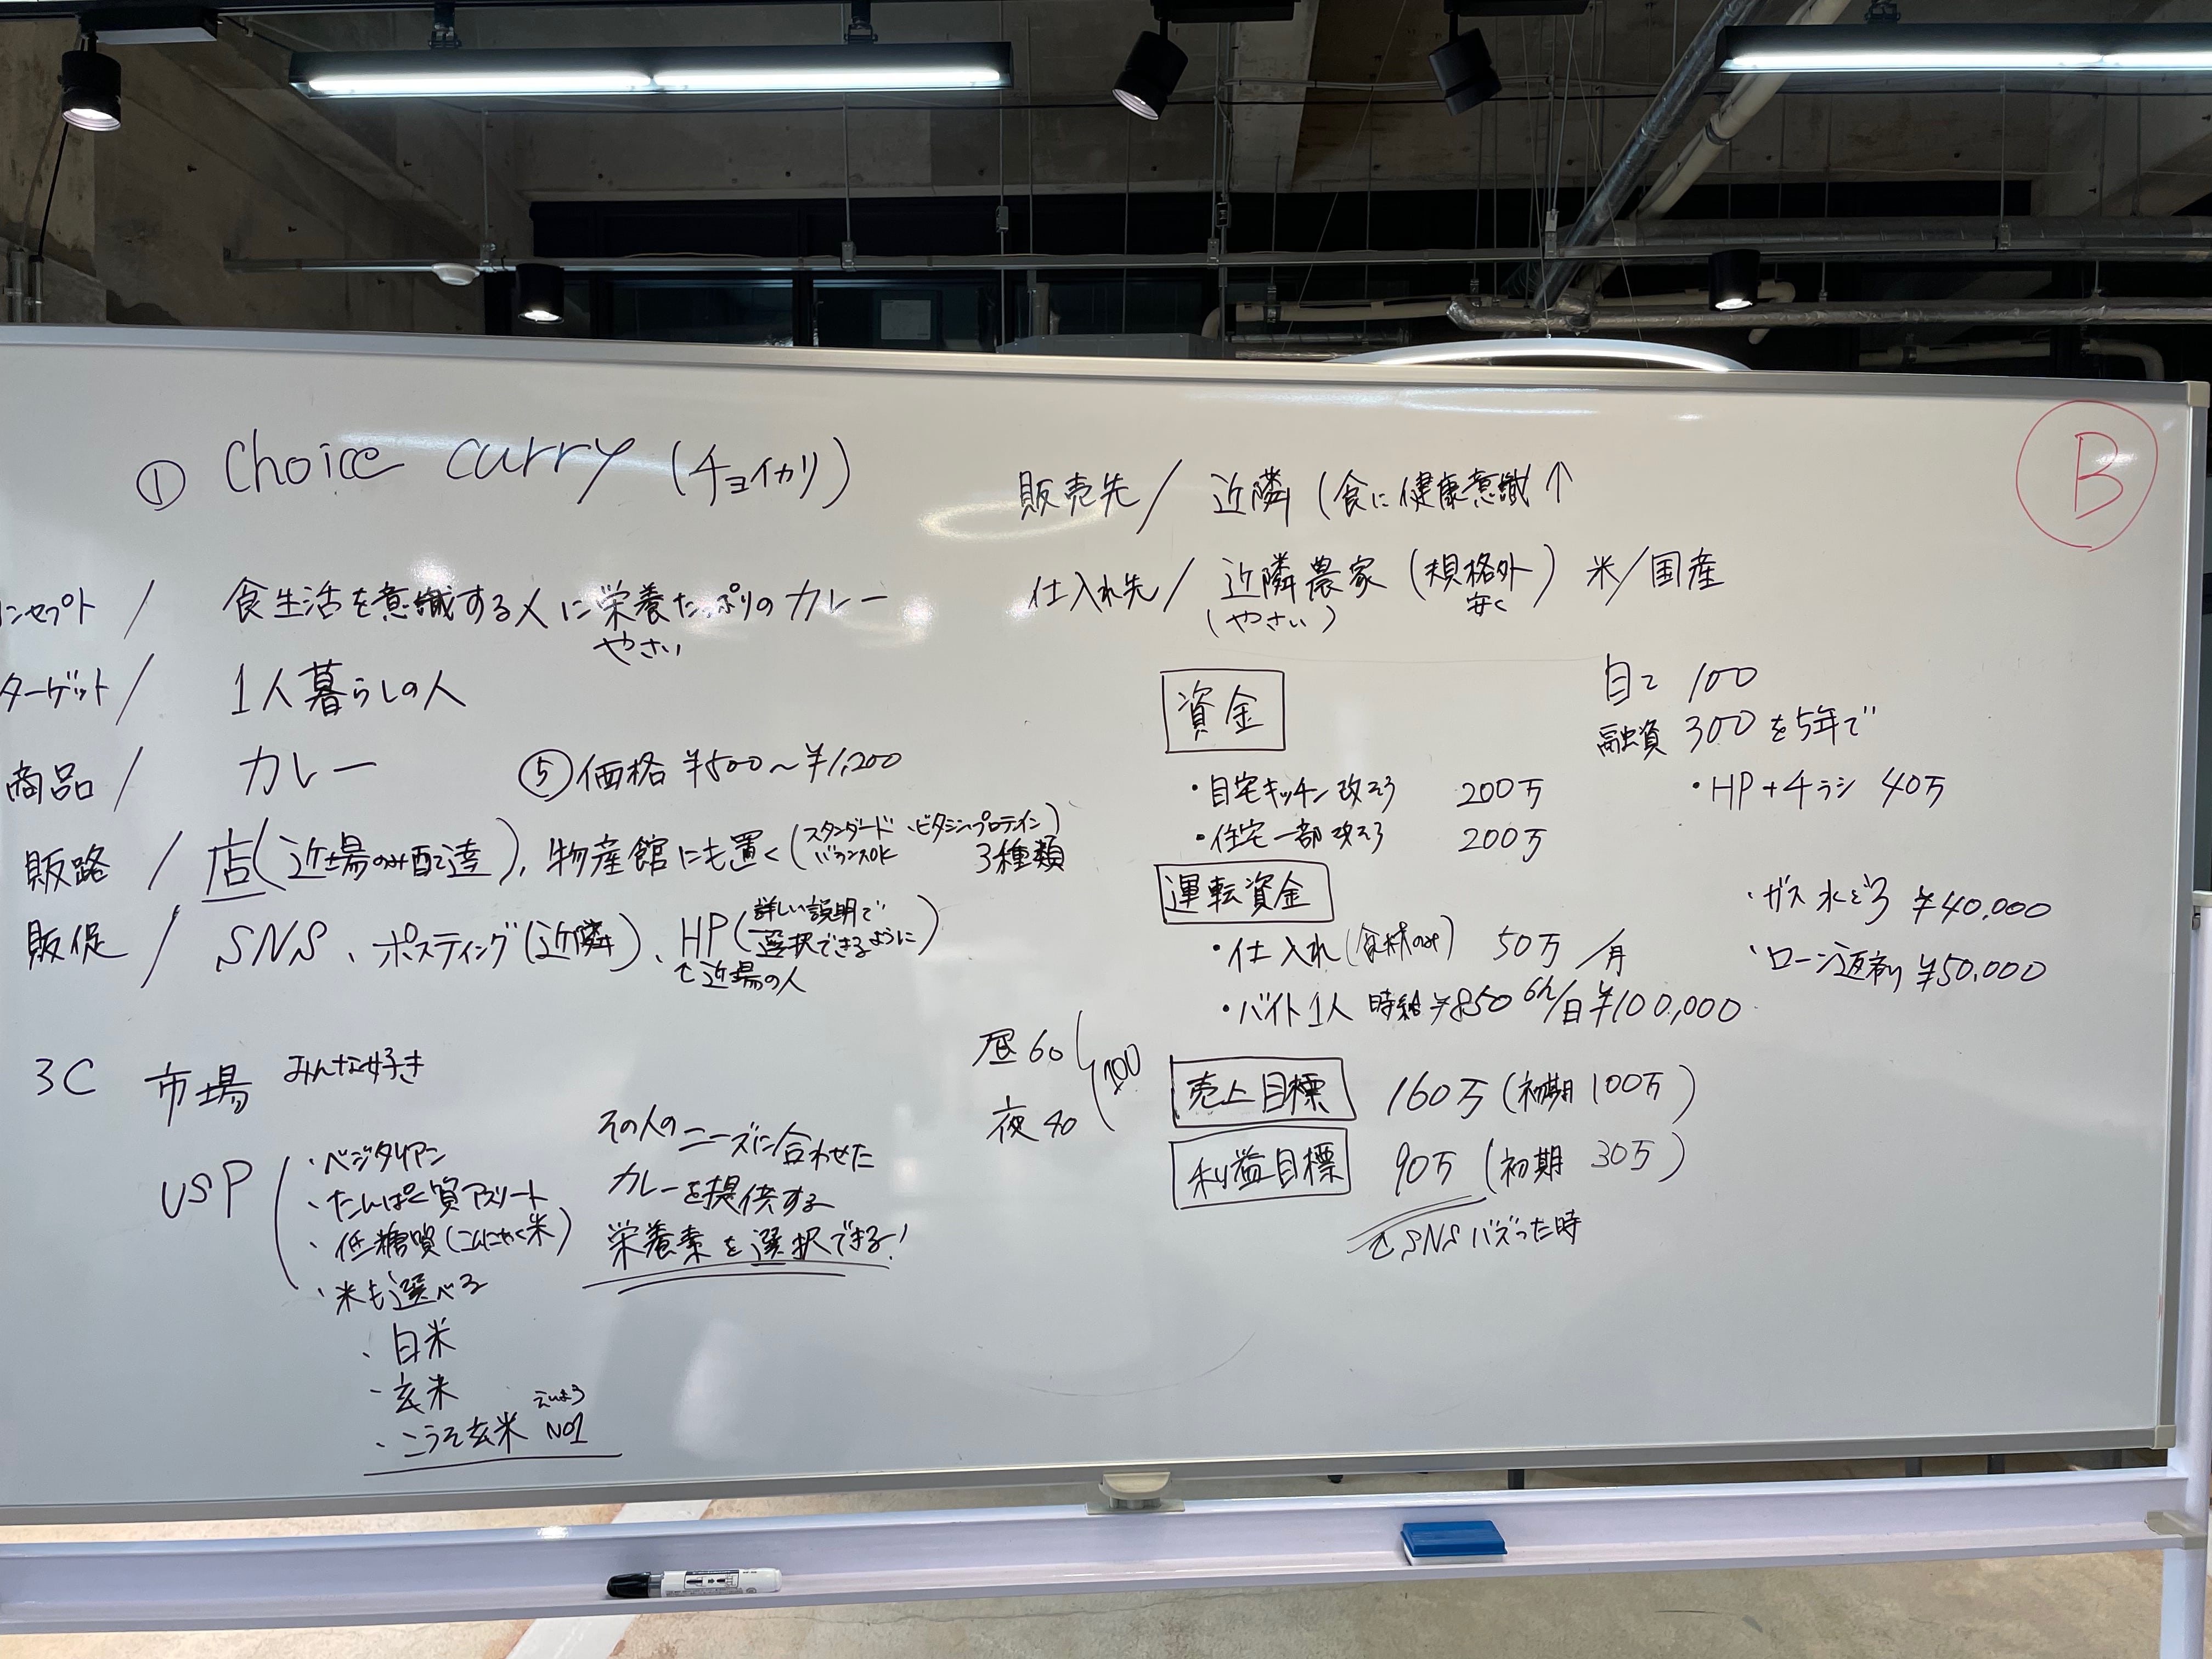 ① Choice curry (チョイカリ)
ンセプト / 食生活を意識する人に栄養たっぷりのカレー
やさい
ターゲット / 1人暮らしの人
商品 / カレー ⑤価格 ¥500〜¥1,200
販路 / 店(近場のみ配達), 物産館にも置く(スタンダード、ビタミン、プロテイン)
バランスOK 3種類
販促 / SNS、ポスティング(近隣)、HP(詳しい説明で
選択できるように)
近場の人
3C 市場 みんな好き
USP
・ベジタリアン
・たんぱく質アスリート
・低糖質(こんにゃく米)
・米も選べる
・白米
・玄米
・こうそ玄米 えいよう NO1
その人のニーズに合わせた
カレーを提供する
栄養素を選択できる!
販売先 / 近隣 (食に健康意識↑
仕入れ先 / 近隣農家 (規格外) 米/国産
(やさい) 安く
資金
自己 100
融資 300を5年で
・自宅キッチン改ぞう 200万
・HP+チラシ 40万
・住宅一部改ぞう 200万
運転資金
・ガス水どう ¥40,000
・仕入れ(食材のみ) 50万/月
・ローン返済 ¥50,000
・バイト1人 時給¥850 6h/日 ¥100,000
昼60
夜40
100
売上目標 160万 (初期100万)
利益目標 90万 (初期 30万)
SNSバズった時
B